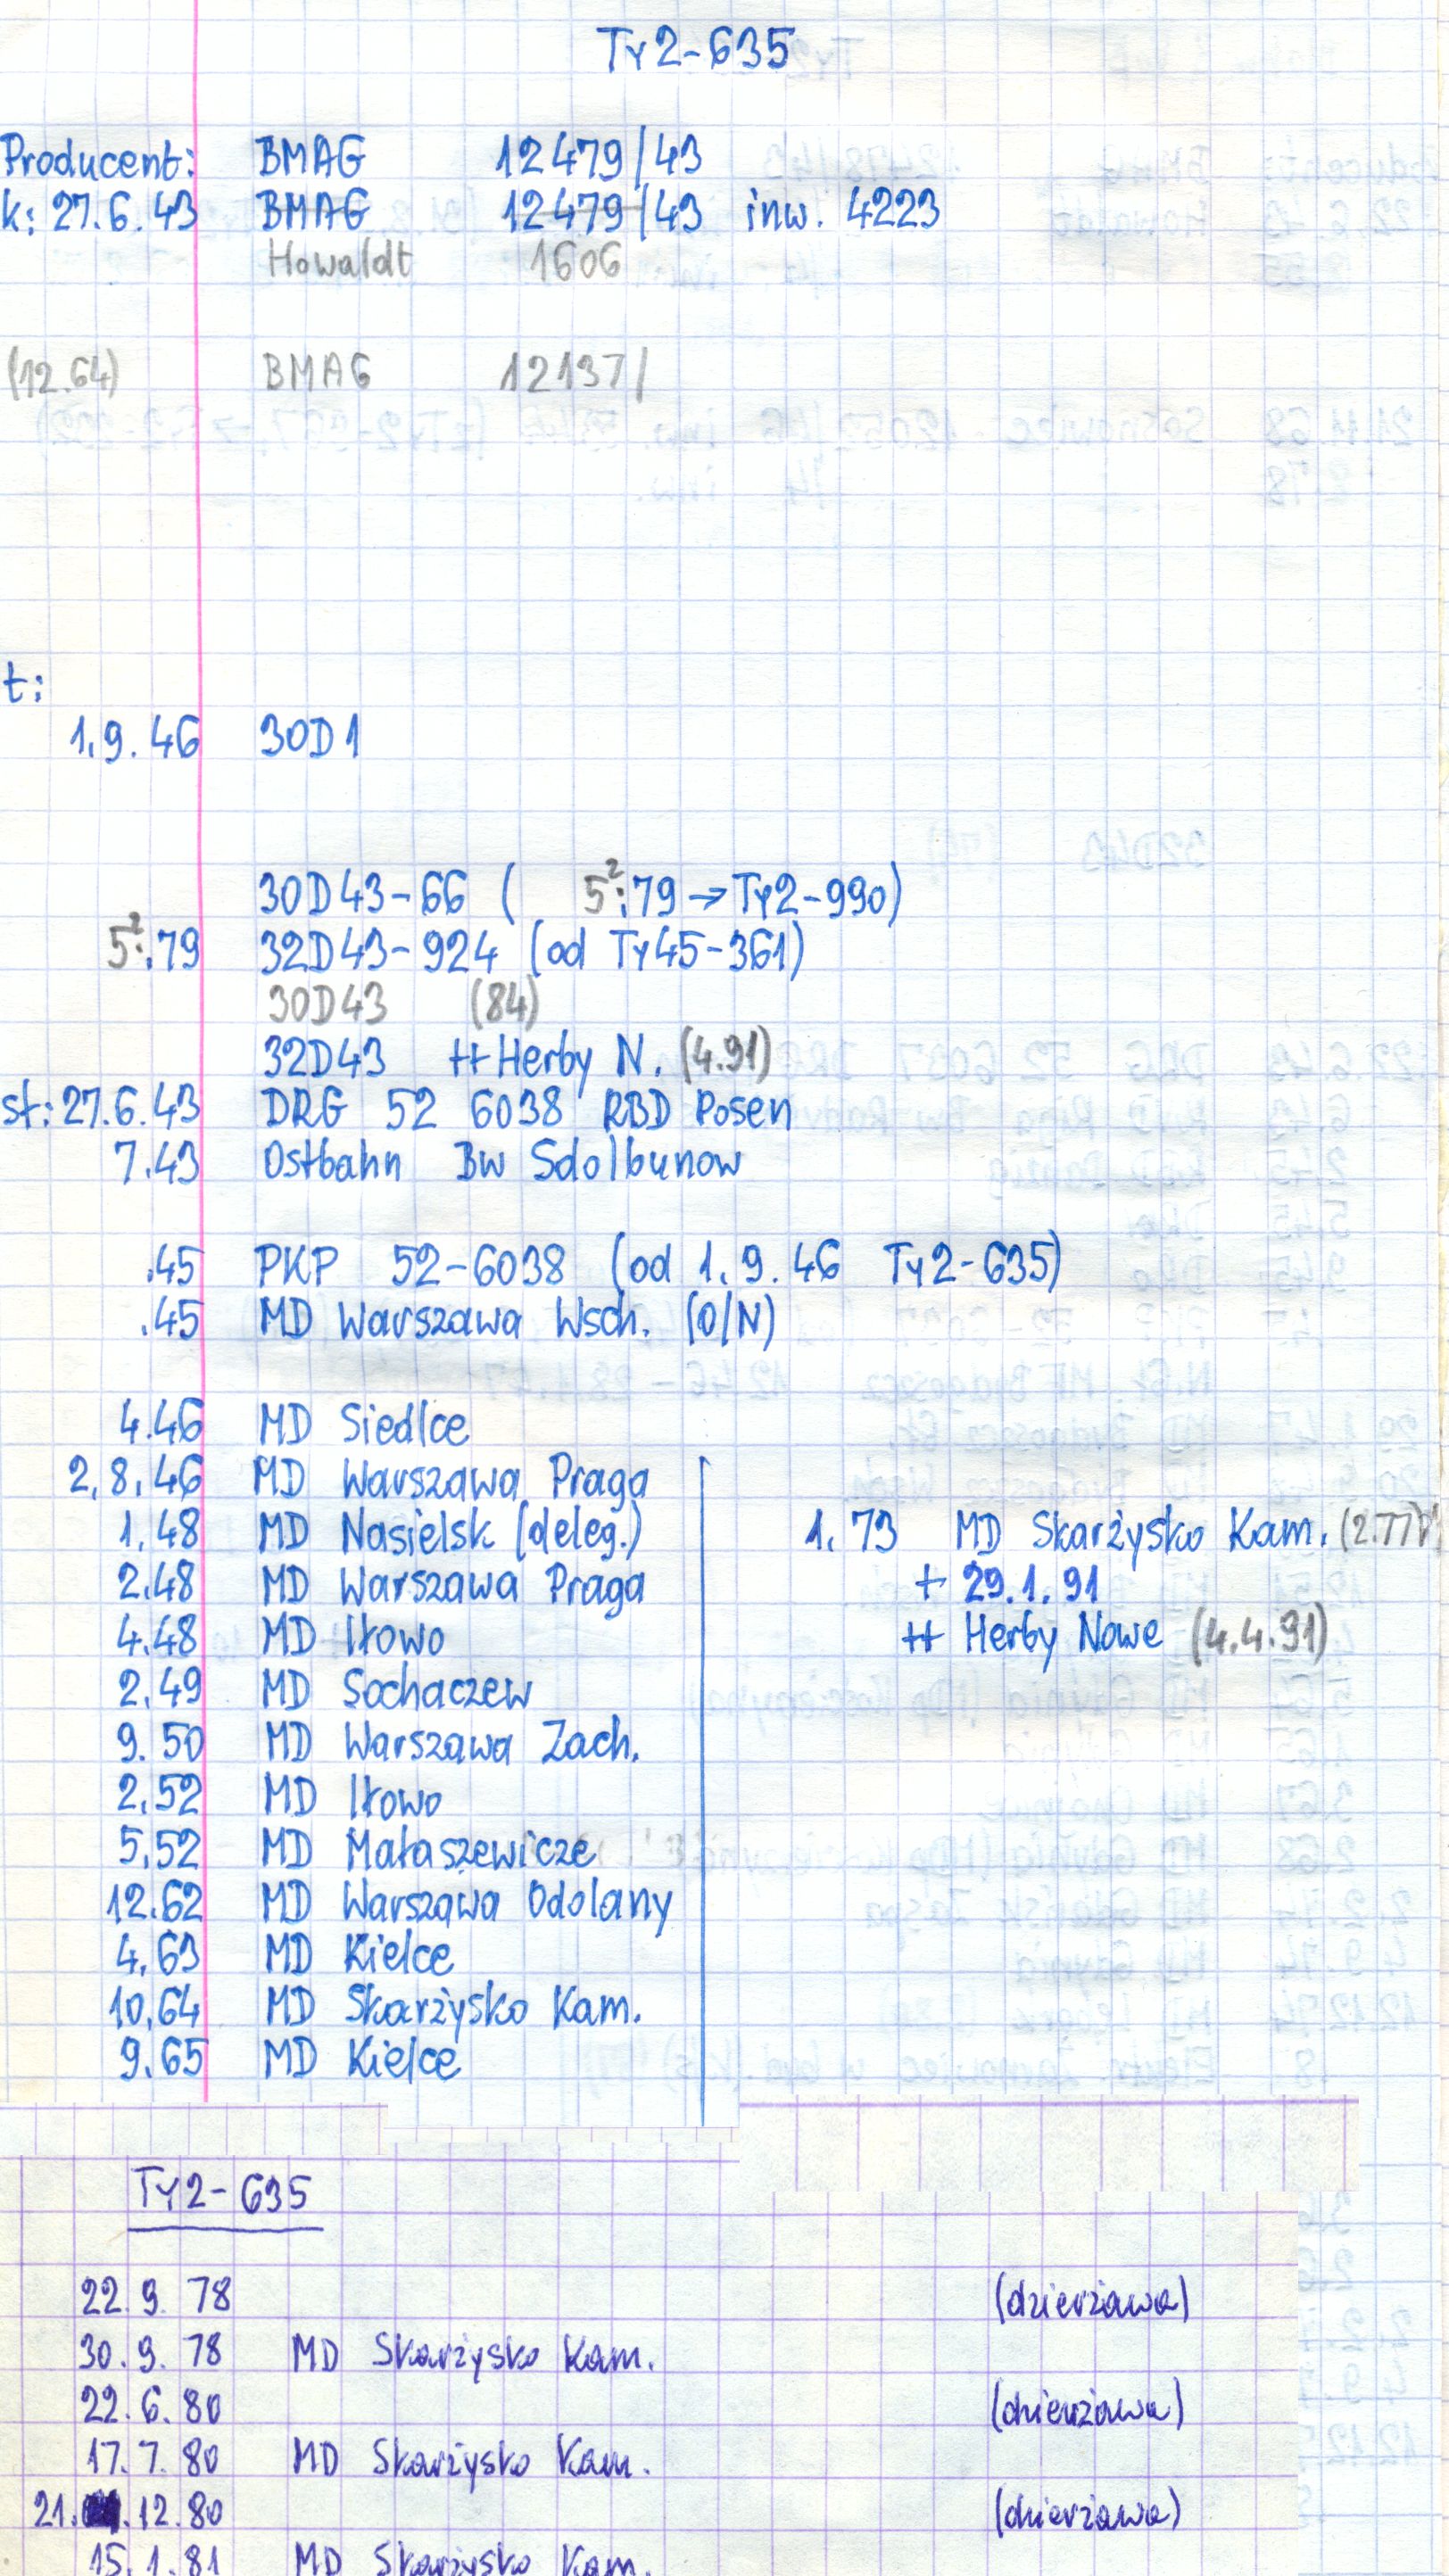 Ty2-635
Producent: BMAG 12479/43
k: 27.6.43 BMAG 12479/43 inw. 4223
Howaldt 1606
(12.64) BMAG 12137/
t:
1.9.46 30D1
30D43-66 ( 5?.79 → Ty2-990)
5?.79 32D43-924 (od Ty45-361)
30D43 (84)
32D43 ++ Herby N. (4.91)
st: 27.6.43 DRG 52 6038 RBD Posen
7.43 Ostbahn Bw Sdolbunow
.45 PKP 52-6038 (od 1.9.46 Ty2-635)
.45 MD Warszawa Wsch. (O/N)
4.46 MD Siedlce
2.8.46 MD Warszawa Praga
1.48 MD Nasielsk (deleg.)
2.48 MD Warszawa Praga
4.48 MD Iłowo
2.49 MD Sochaczew
9.50 MD Warszawa Zach.
2.52 MD Iłowo
5.52 MD Małaszewicze
12.62 MD Warszawa Odolany
4.63 MD Kielce
10.64 MD Skarżysko Kam.
9.65 MD Kielce
1.73 MD Skarżysko Kam.
+ 29.1.91
++ Herby Nowe (4.4.91)
Ty2-635
22.9.78 (dzierżawa)
30.9.78 MD Skarżysko Kam.
22.6.80 (dzierżawa)
17.7.80 MD Skarżysko Kam.
21.12.80 (dzierżawa)
15.1.81 MD Skarżysko Kam.